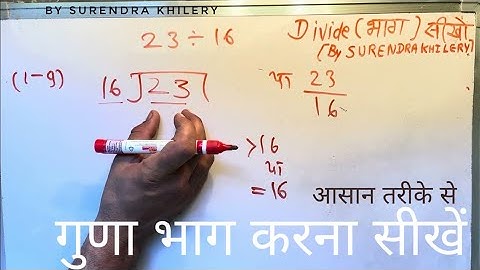 BY SURENDRA KHILERY
Divide (भाग) सीखो
(By SURENDRA KHILERY)
23÷16
(1-9)
16) 23
या 23/16
>16
या
=16
आसान तरीके से
गुणा भाग करना सीखें